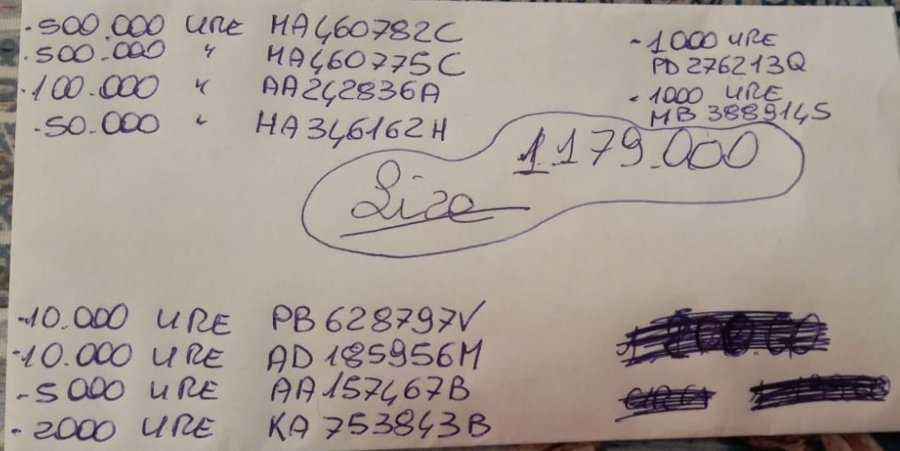 -500.000 LIRE HA460782C
-500.000 " HA460775C
-100.000 " AA242836A
-50.000 " HA346162H
-1000 LIRE
PD276213Q
-1000 LIRE
MB388914S
1179.000
Lire
-10.000 LIRE PB628797V
-10.000 LIRE AD185956M
-5000 LIRE AA157467B
-2000 LIRE KA753843B